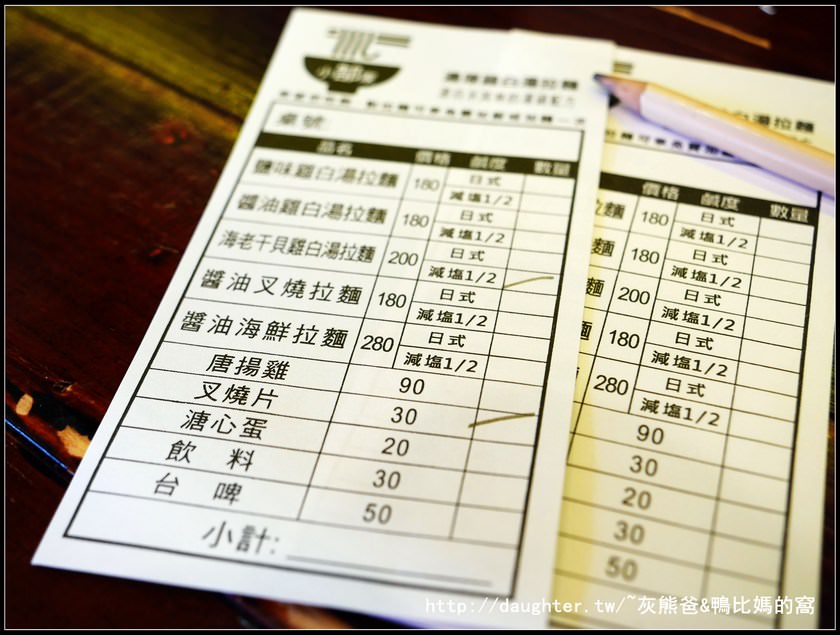 小部屋
濃厚雞白湯拉麵
桌號:
品名 價格 鹹度 數量
鹽味雞白湯拉麵 180 日式
減塩1/2
醬油雞白湯拉麵 180 日式
減塩1/2
海老干貝雞白湯拉麵 200 日式
減塩1/2
醬油叉燒拉麵 180 日式
減塩1/2
醬油海鮮拉麵 280 日式
減塩1/2
唐揚雞 90
叉燒片 30
溏心蛋 20
飲 料 30
台 啤 50
小計:
白湯拉麵
價格 鹹度 數量
拉麵 180 日式
減塩1/2
麵 180 日式
減塩1/2
麵 200 日式
減塩1/2
180 日式
減塩1/2
280 日式
減塩1/2
90
30
20
30
50
http://daughter.tw/~灰熊爸&鴨比媽的窩